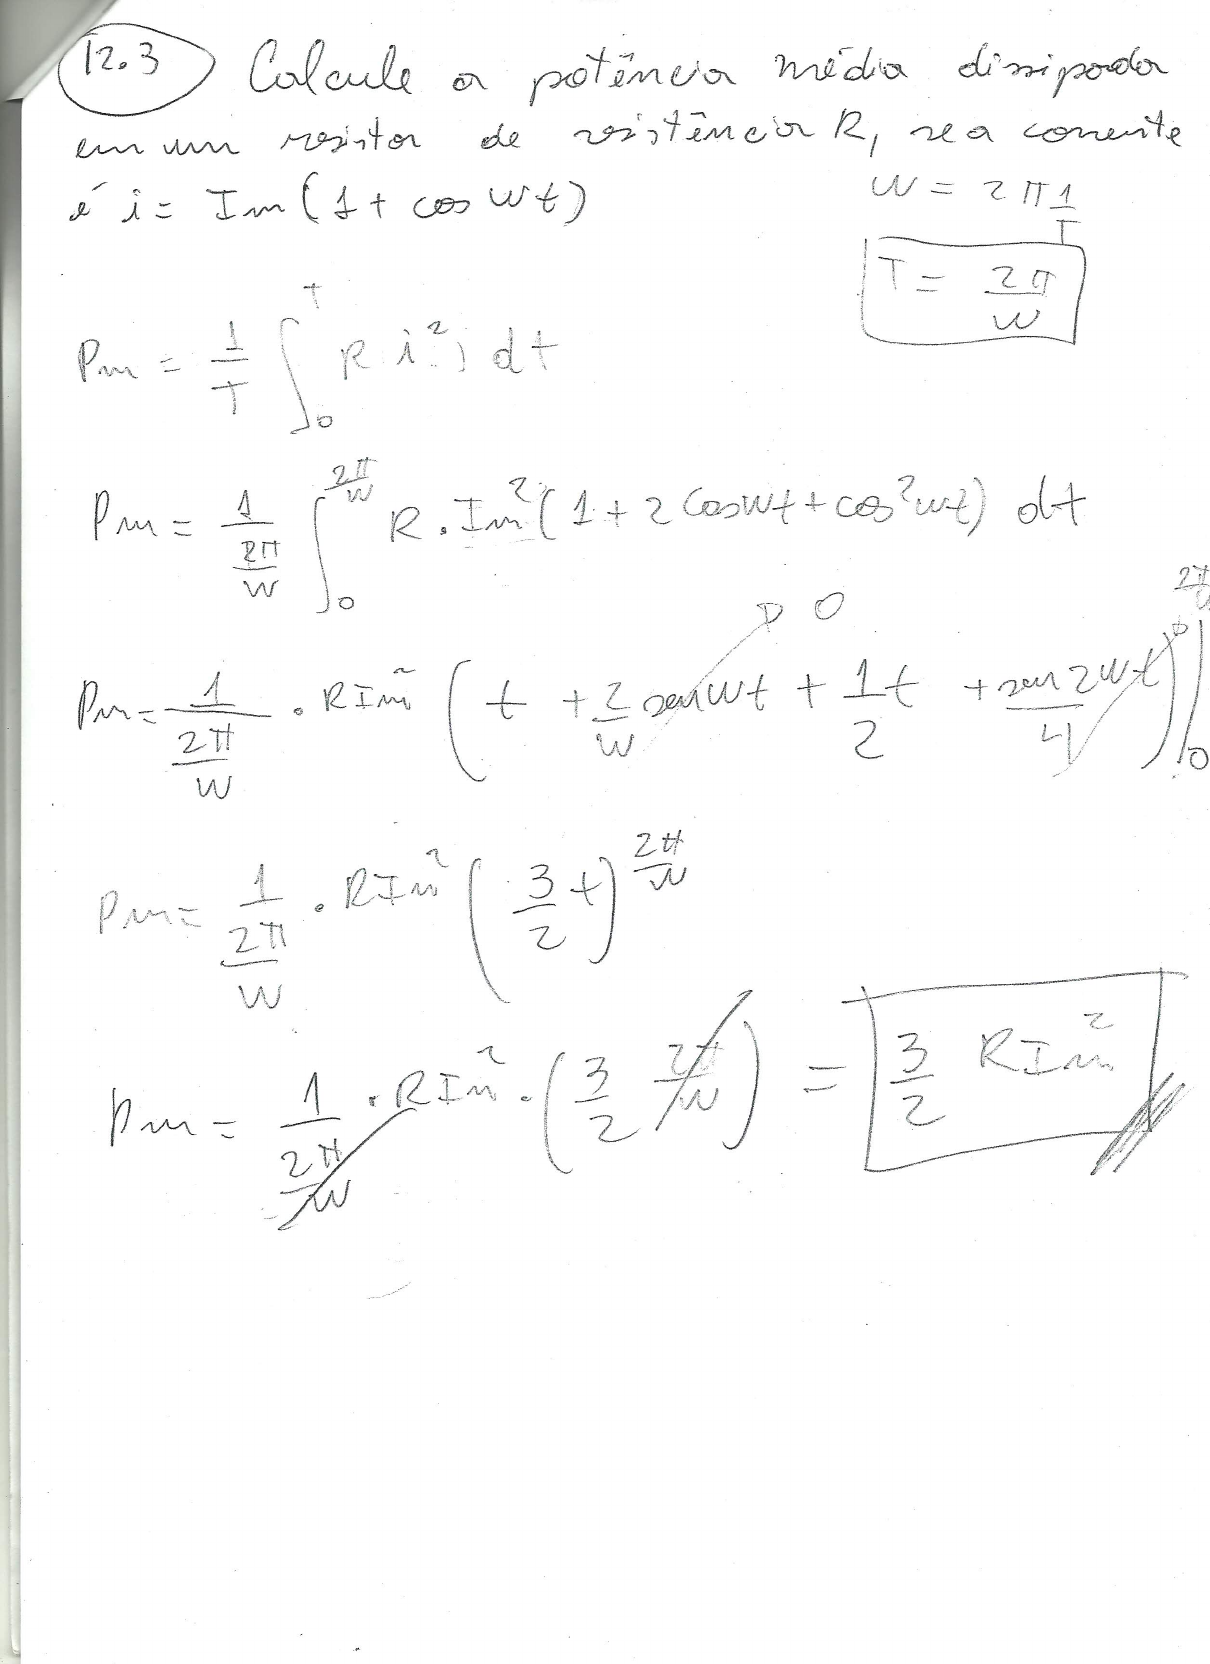 12.3 Calcule a potência média dissipada
em um resistor de resistência R, se a corrente
é i = Im (1 + cos wt)
w = 2π 1/T
T = 2π/w
Pm = 1/T ∫₀ᵀ R i² dt
Pm = 1/(2π/w) ∫₀^(2π/w) R . Im² (1 + 2 cos wt + cos² wt) dt
Pm = 1/(2π/w) . R Im² (t + 2/w sen wt → 0 + 1/2 t + sen 2wt/4 → 0) |₀^(2π/w)
Pm = 1/(2π/w) . R Im² (3/2 t)^(2π/w)
Pm = 1/(2π/w) . R Im² . (3/2 2π/w) = 3/2 R Im²